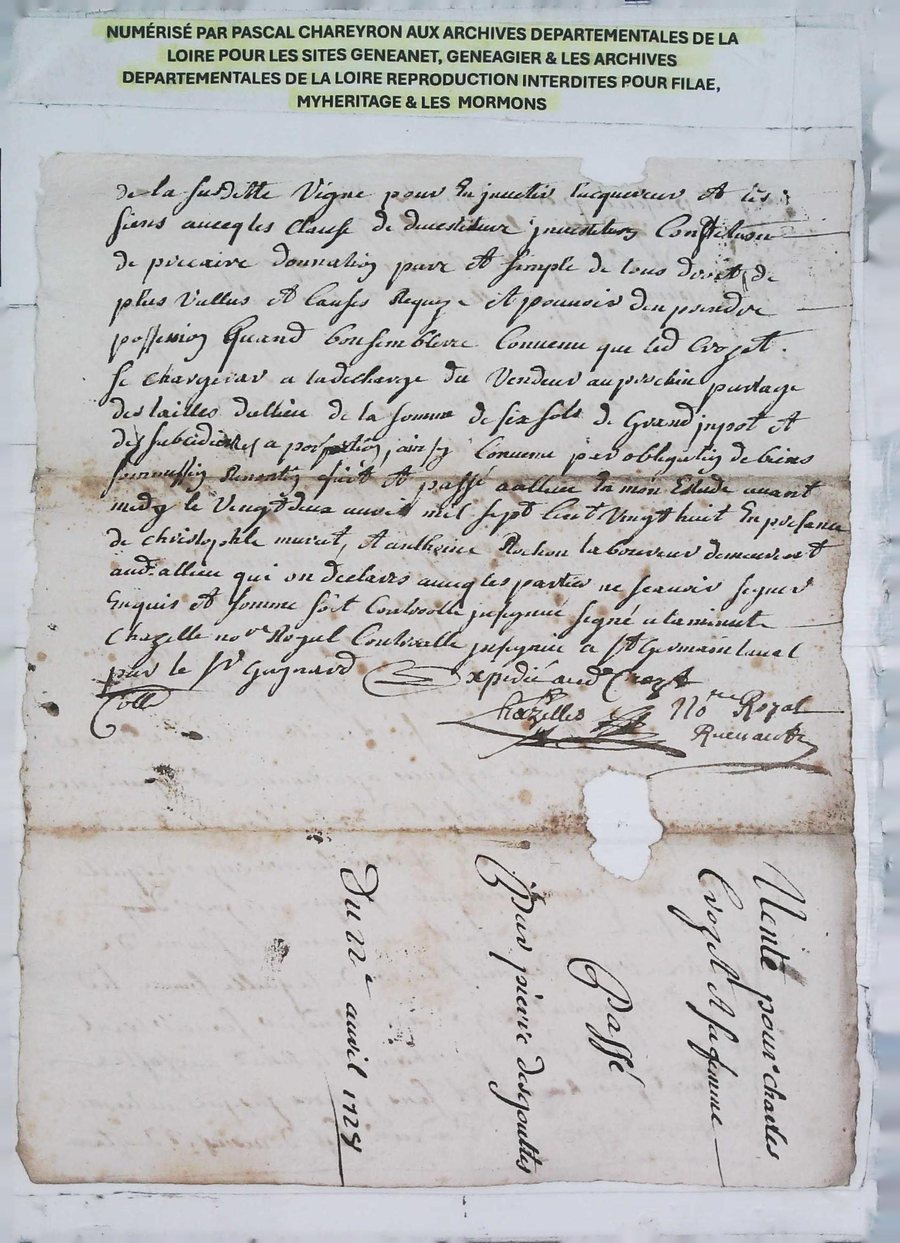 NUMÉRISÉ PAR PASCAL CHAREYRON AUX ARCHIVES DEPARTEMENTALES DE LA
LOIRE POUR LES SITES GENEANET, GENEAGIER & LES ARCHIVES
DEPARTEMENTALES DE LA LOIRE REPRODUCTION INTERDITES POUR FILAE,
MYHERITAGE & LES MORMONS
de la susditte Vigne pour En jnvestir lacquereur Et les
siens avecq les Clause de devestiture jnvestiture Constitution
de precaire donnation pure Et simple de tous droit de
plus vallus Et Causes Et pouvoir den prendre
possession Quand bon semblera Convenu que led Crozet
se chargerar a la decharge du Vendeur au prochin partage
des tailles dallieu de la somme de six sols de Grand jnpot Et
des subcidiaires a porportion, ainsy Convenu par obligation de biens
soumission Renontion fait Et passé a allieu En mon Estude avant
midy le Vingt deux avril mil sept Cent Vingt huit En presance
de Christophle murat, Et anthoine Rochon laboureur demeurant
aud allieu qui on declarés avecq les partier ne scavoir signer
Enquis Et somme soit Controolle jnsignué signé a la minutte
Chazelle nore Royal Controlle jnsignué a St Germain laval
par le Sr Guignard Expedié aud Crozet
Coll
Chazelles Nore Royal
Vente pour charles
Crozet Et sa femme
Passé
Par pierre desgouttes
Du 22e avril 1728